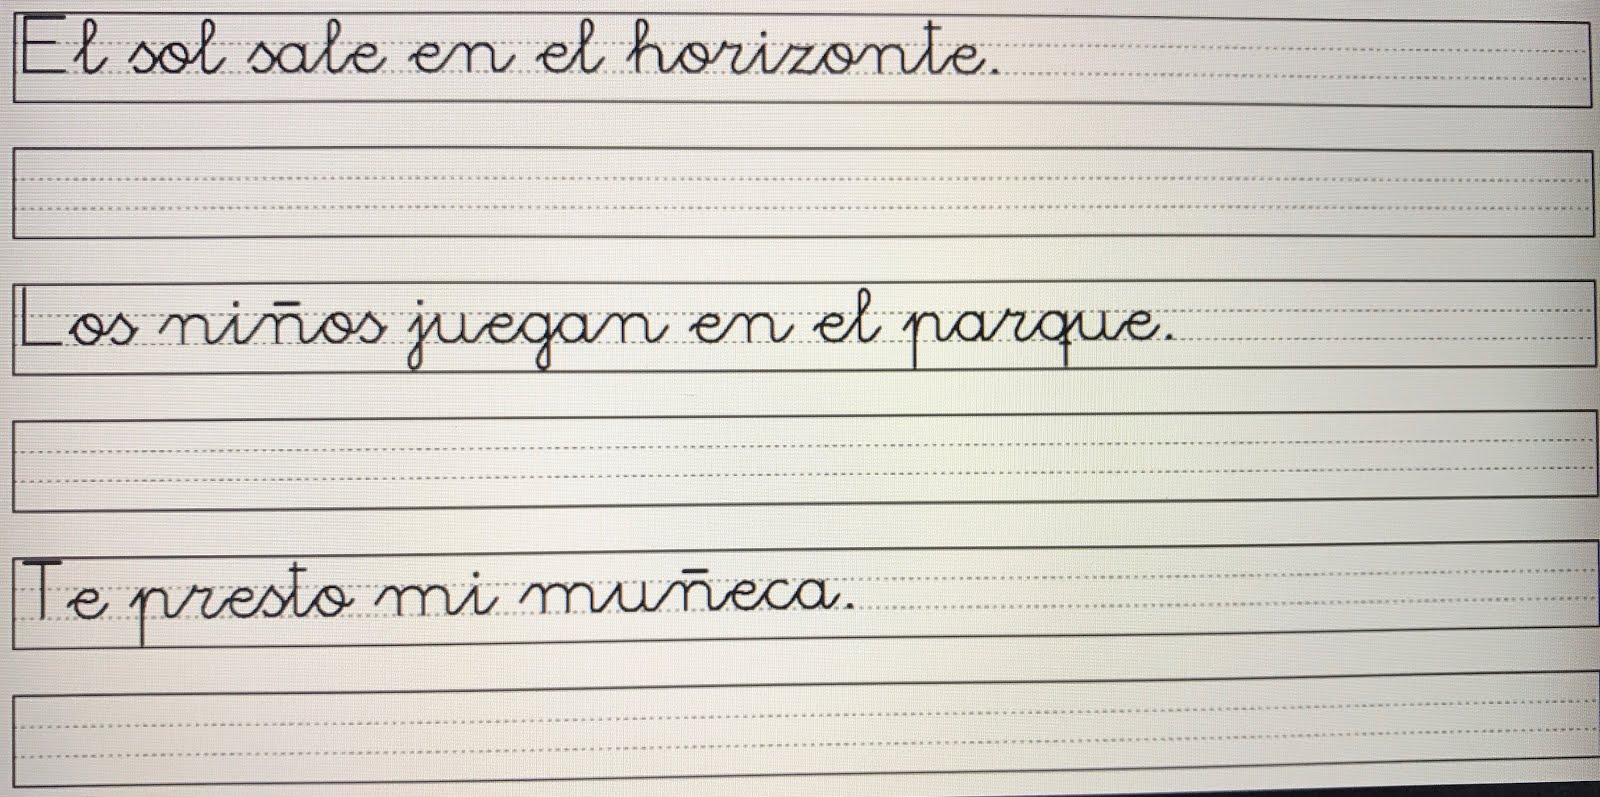 El sol sale en el horizonte.
Los niños juegan en el parque.
Te presto mi muñeca.